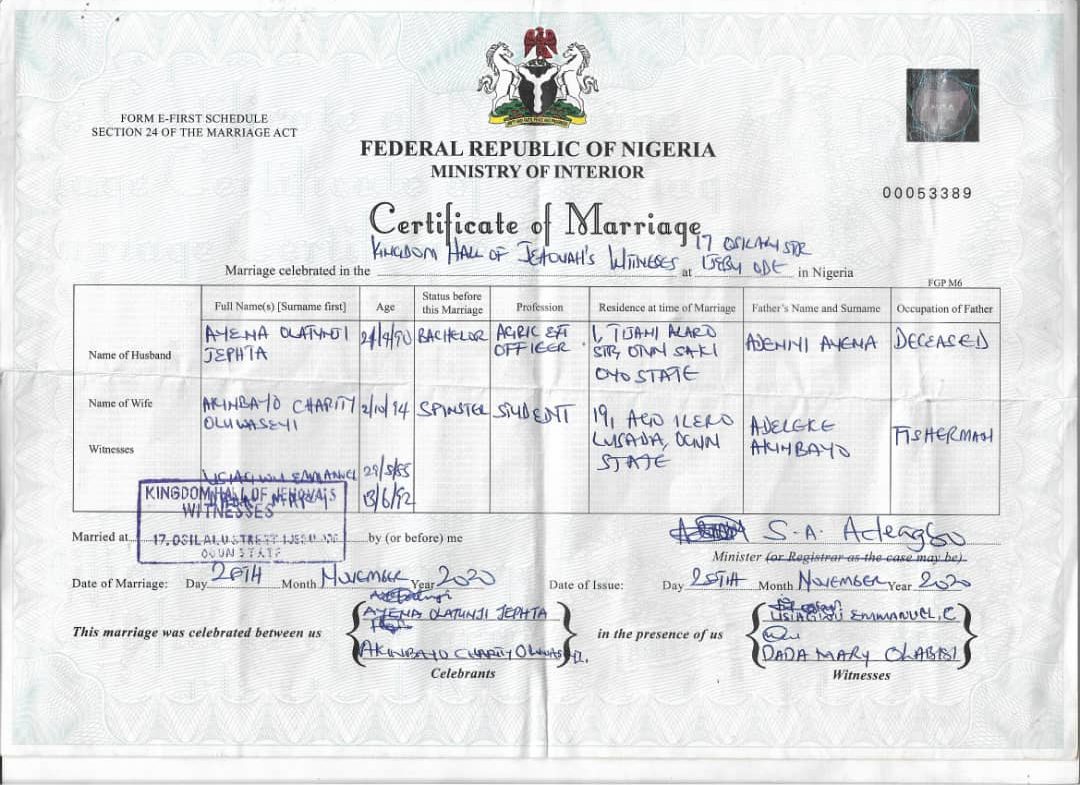 FORM E-FIRST SCHEDULE
SECTION 24 OF THE MARRIAGE ACT
FEDERAL REPUBLIC OF NIGERIA
MINISTRY OF INTERIOR
00053389
Certificate of Marriage
Marriage celebrated in the KINGDOM HALL OF JEHOVAH'S WITNESSES at 17 OSILALU STR IJEBU ODE in Nigeria
FGP M6
Full Name(s) [Surname first] Age Status before this Marriage Profession Residence at time of Marriage Father's Name and Surname Occupation of Father
Name of Husband AYENA OLATUNJI BACHELOR AGRIC EXT 1, TIJANI ALARO ADENIYI AYENA DECEASED
JEPHTA OFFICER STR, OTUN SAKI
OYO STATE
Name of Wife AKINBAYO CHARITY 2/10/94 SPINSTER STUDENT 19, AGO ILERO ADELEKE FISHERMAN
OLUWASEYI LUSADA, OGUN AKINBAYO
STATE
Witnesses
EMMANUEL 29/5/85
13/6/92
KINGDOM HALL OF JEHOVAH'S
WITNESSES
17, OSILALU STREET IJEBU ODE
OGUN STATE
Married at by (or before) me S.A.
Minister (or Registrar as the case may be).
Date of Marriage: Day 28TH Month NOVEMBER Year 2020 Date of Issue: Day 28TH Month NOVEMBER Year 2020
This marriage was celebrated between us AYENA OLATUNJI JEPHTA in the presence of us EMMANUEL, C
AKINBAYO CHARITY OLUWASEYI. DADA MARY OLABISI
Celebrants Witnesses